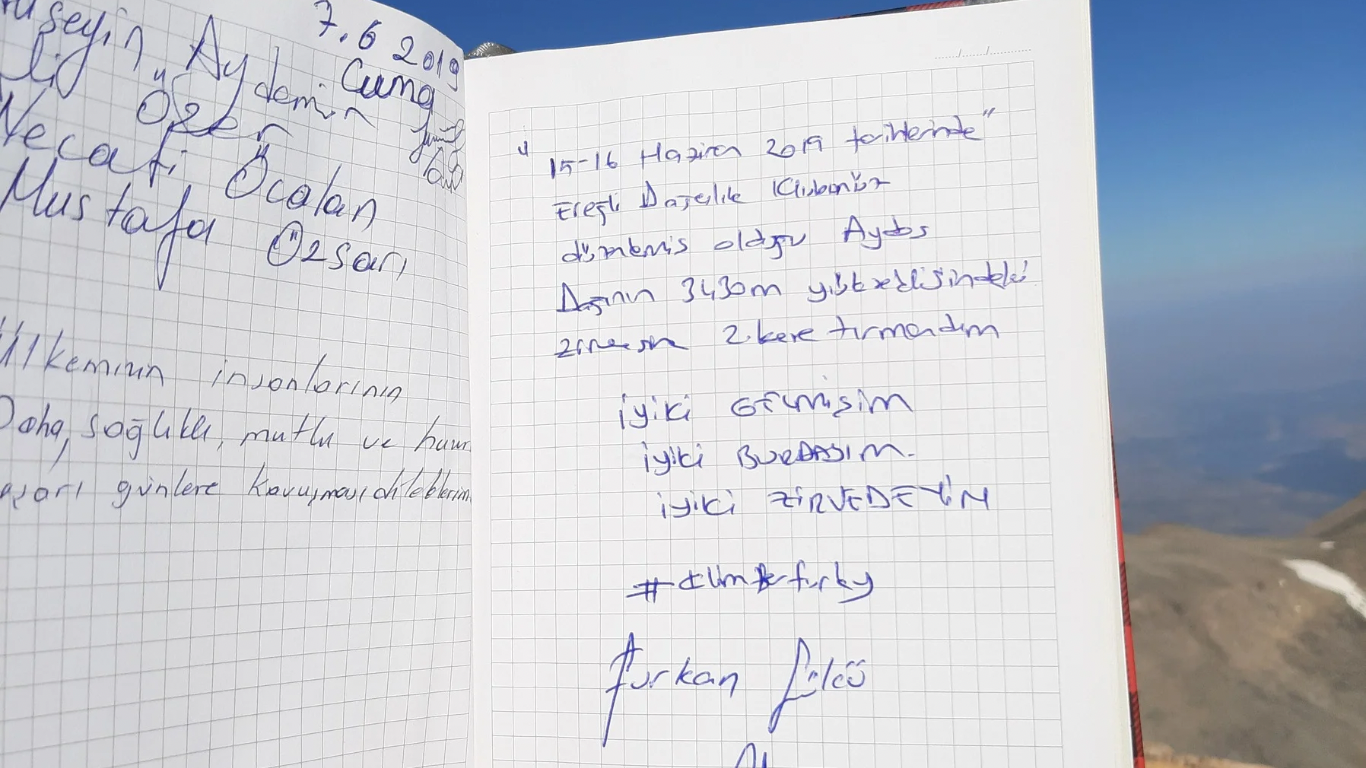 7.6 2019
Aydemir Cuma
Özer
Necati Öcalan
Mustafa Özsarı
Ülkemizin insanlarının
Daha, sağlıklı, mutlu ve
günlere kavuşması dileklerim
15-16 Haziran 2019 tarihlerinde"
Ereğli Dağcılık Klubünün
olduğu Aydos
Dağının 3430m yüksekliğindeki
2.kere tırmandım
iyiki GELMİŞİM
iyiki BURDAYIM.
iyiki ZİRVEDEYİM
furkan